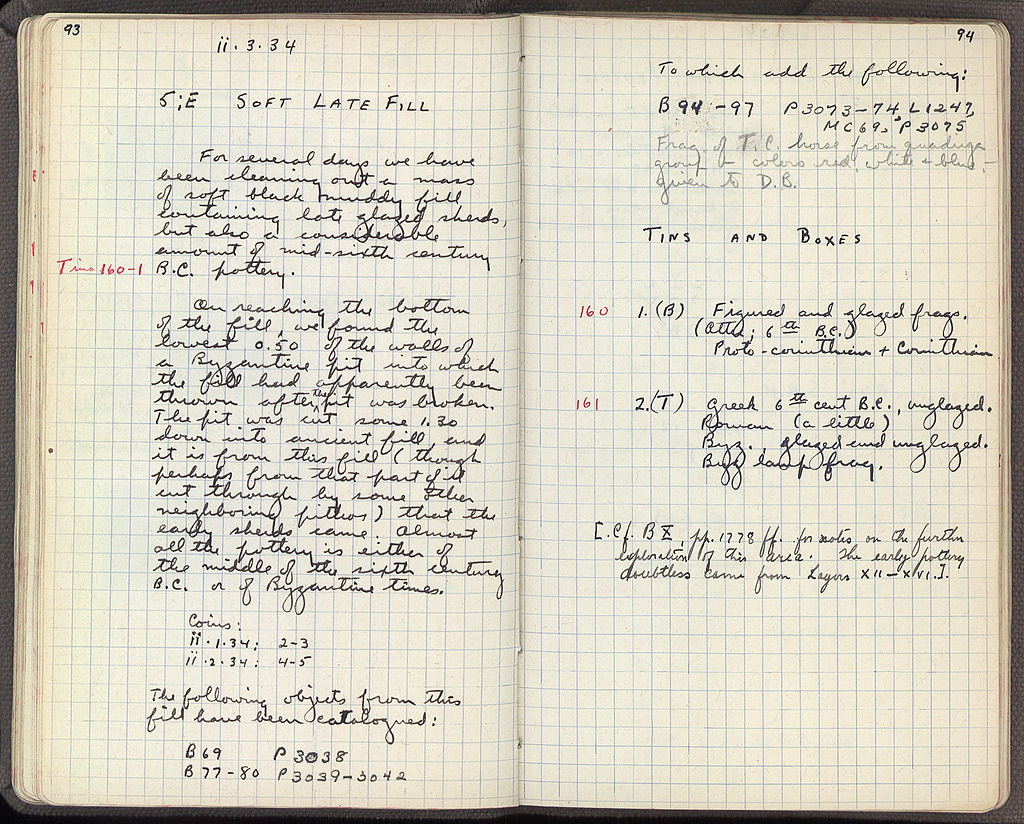 93
ii.3.34
5;E SOFT LATE FILL
For several days we have
been cleaning out a mass
of soft black muddy fill
containing late glazed sherds,
but also a considerable
amount of mid-sixth century
Tins 160-1 B.C. pottery.
On reaching the bottom
of the fill, we found the
lowest 0.50 of the walls of
a Byzantine pit into which
the fill had apparently been
thrown after the pit was broken.
The pit was cut some 1.30
down into ancient fill and
it is from this fill (though
perhaps from that part of it
cut through by some other
neighboring pithos) that the
early sherds came. Almost
all the pottery is either of
the middle of the sixth century
B.C. or of Byzantine times.
Coins:
ii.1.34: 2-3
ii.2.34: 4-5
The following objects from this
fill have been catalogued:
B69 P3038
B77-80 P3039-3042
94
To which add the following:
B94-97 P3073-74, L1247,
MC69, P3075
Frag. of T.C. horse from quadriga
group – colors red, white + blue –
given to D.B.
TINS AND BOXES
160 1. (B) Figured and glazed frags.
(Attic; 6th B.C.)
Proto-corinthian + Corinthian
161 2. (T) Greek 6th cent B.C., unglazed.
Roman (a little)
Byz. glazed and unglazed.
Byz lamp frag.
[Cf. B X, pp. 1778 ff. for notes on the further
exploration of this area. The early pottery
doubtless came from Layers XII-XVI.].